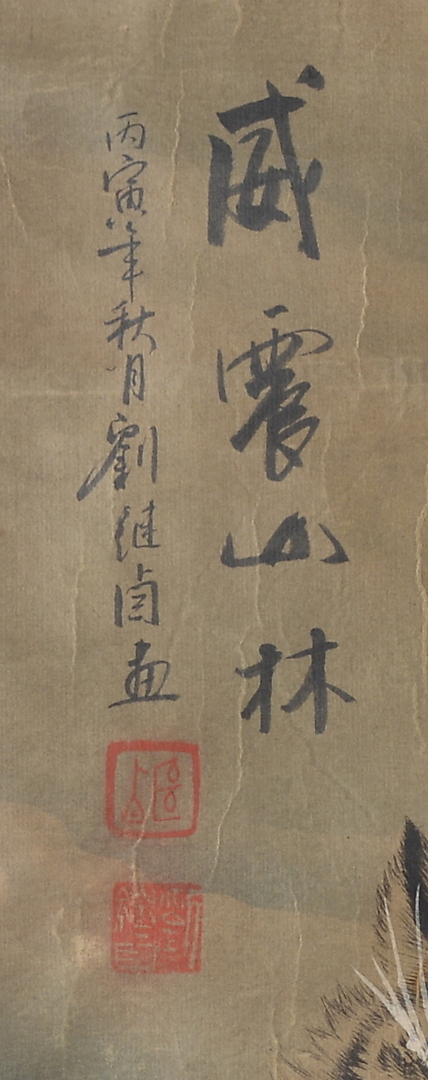 威震山林
丙寅年秋月劉继卣画